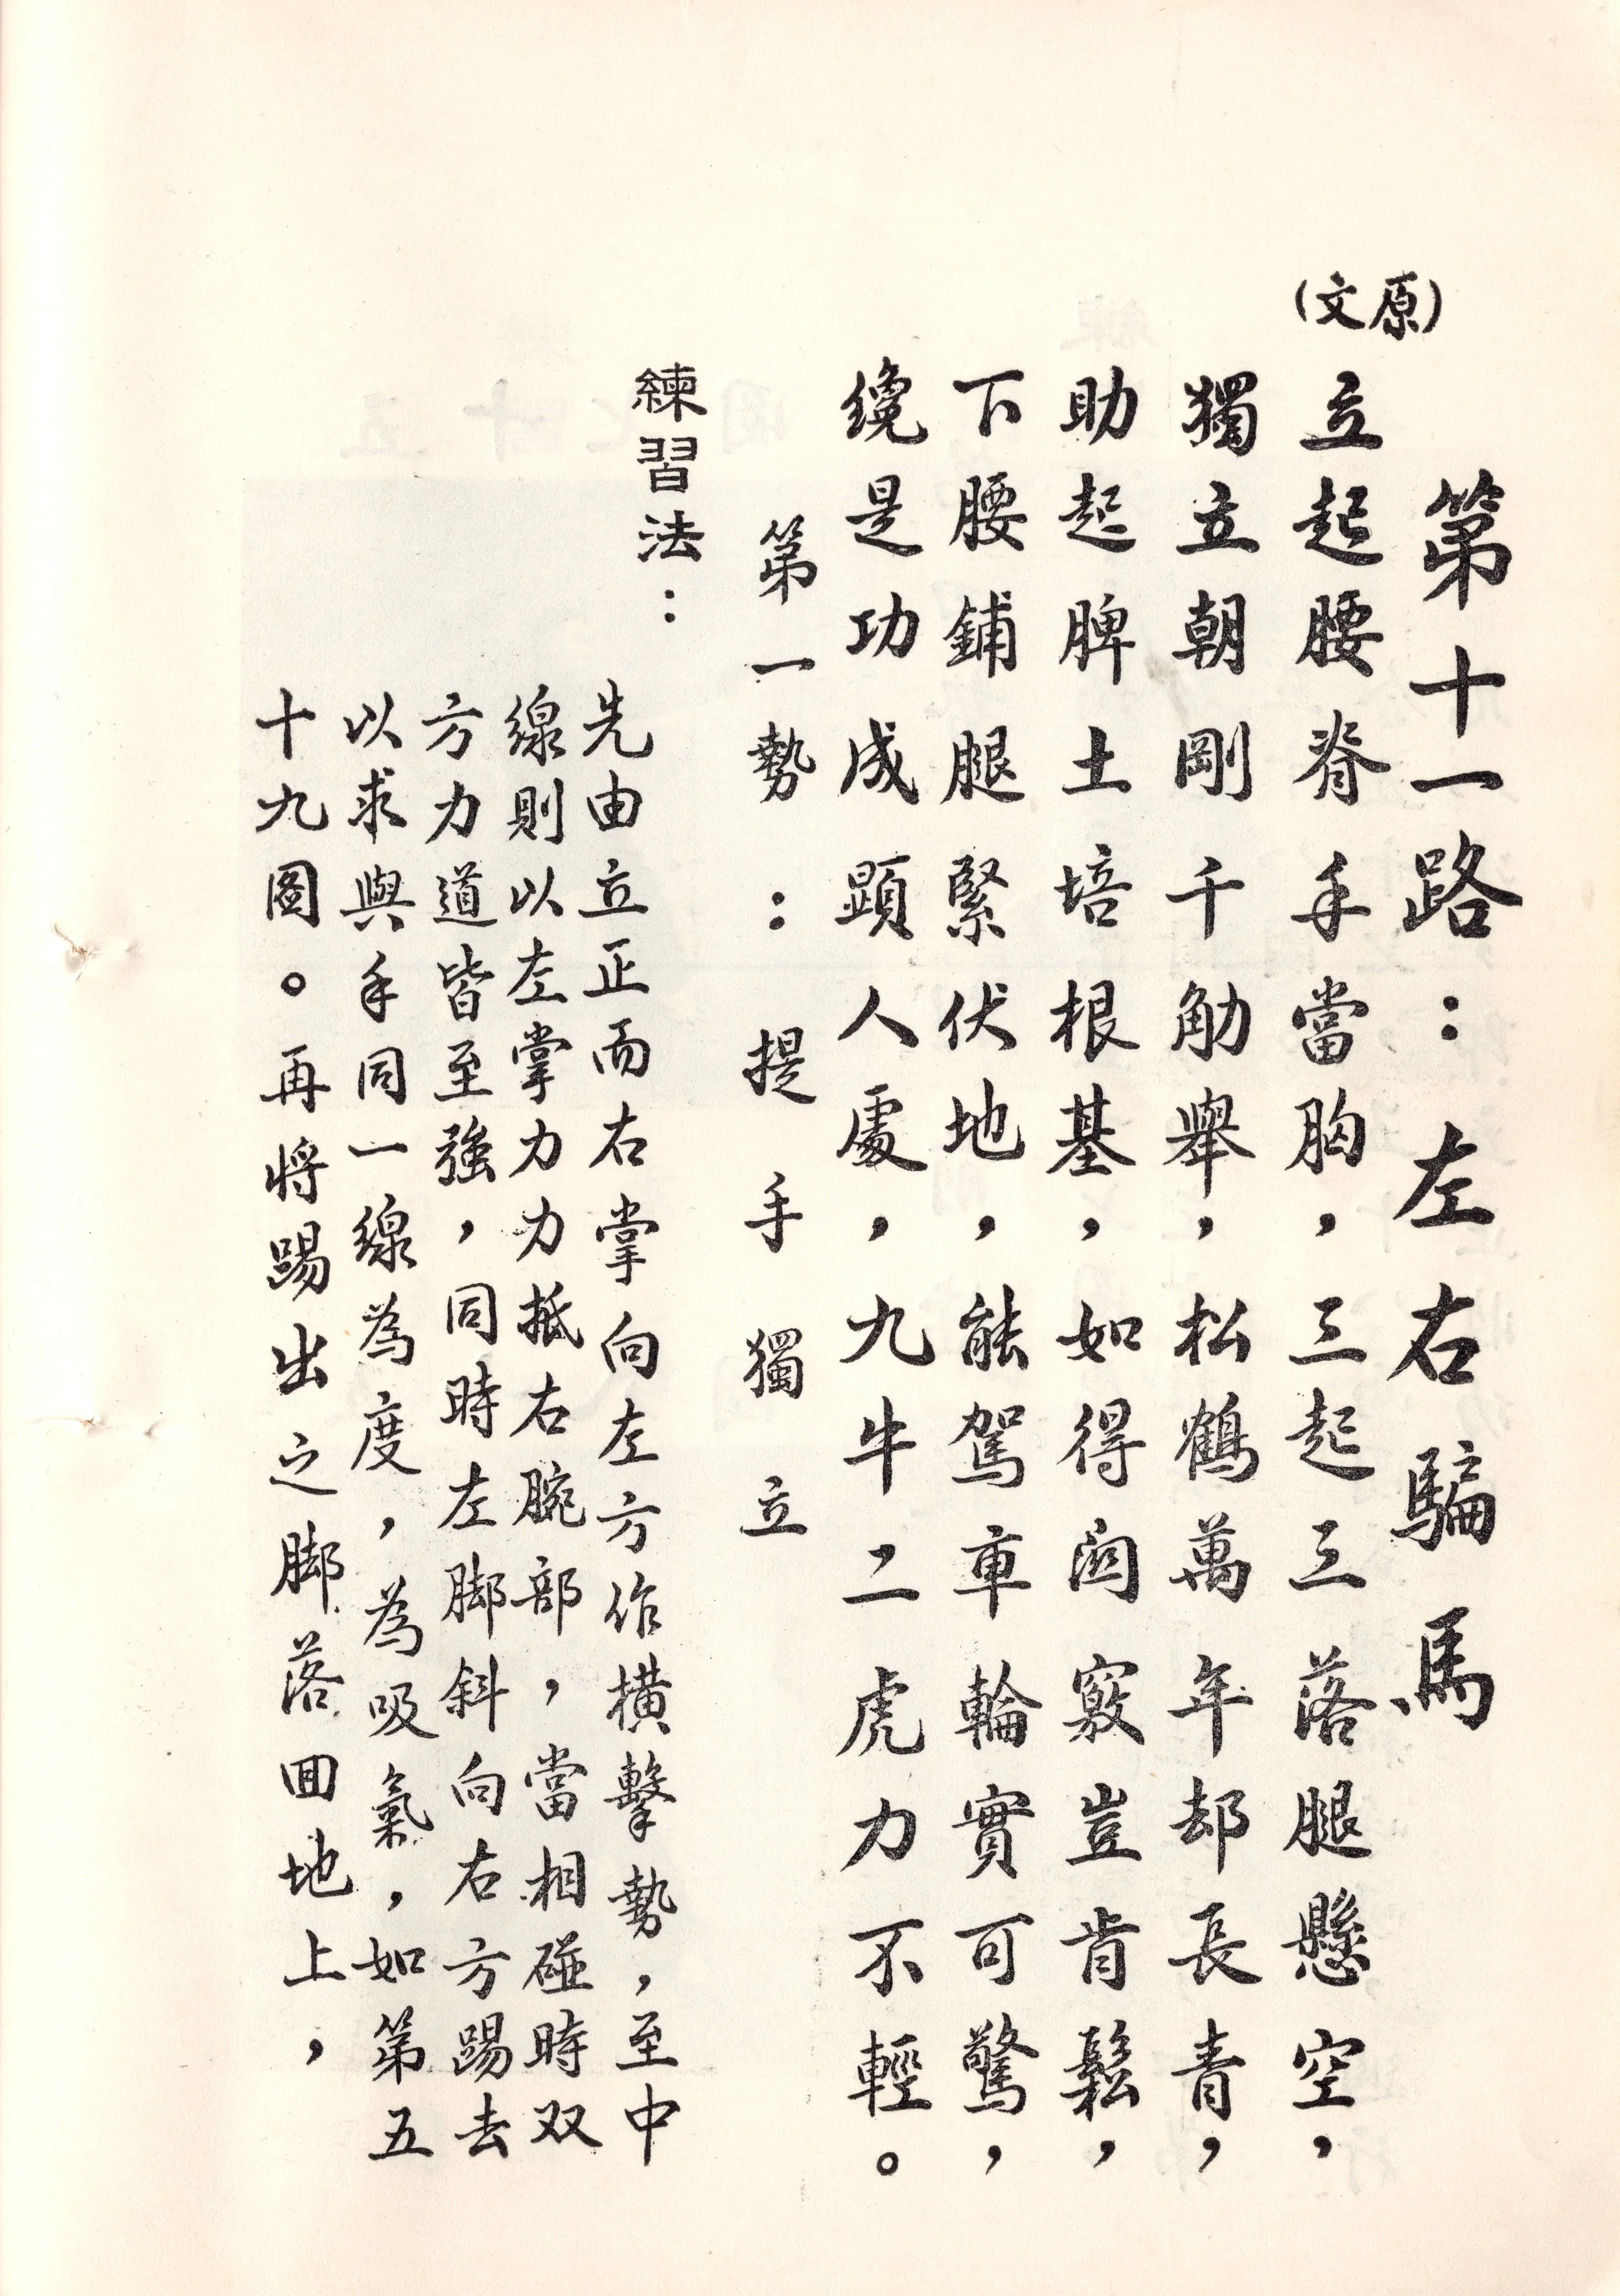 第十一路：左右騙馬
(原文)
立起腰脊手當胸，三起三落腿懸空，
獨立朝剛千觔舉，松鶴萬年却長青，
助起脾土培根基，如得関竅豈肯鬆，
下腰鋪腿緊伏地，能駕車輪實可驚，
纔是功成顕人處，九牛二虎力不輕。
第一勢：提手獨立
練習法：
先由立正而右掌向左方作橫擊勢，至中
線則以左掌力力抵右腕部，當相碰時双
方力道皆至強，同時左脚斜向右方踢去
以求與手同一線為度，為吸氣，如第五
十九圖。再將踢出之脚落回地上，